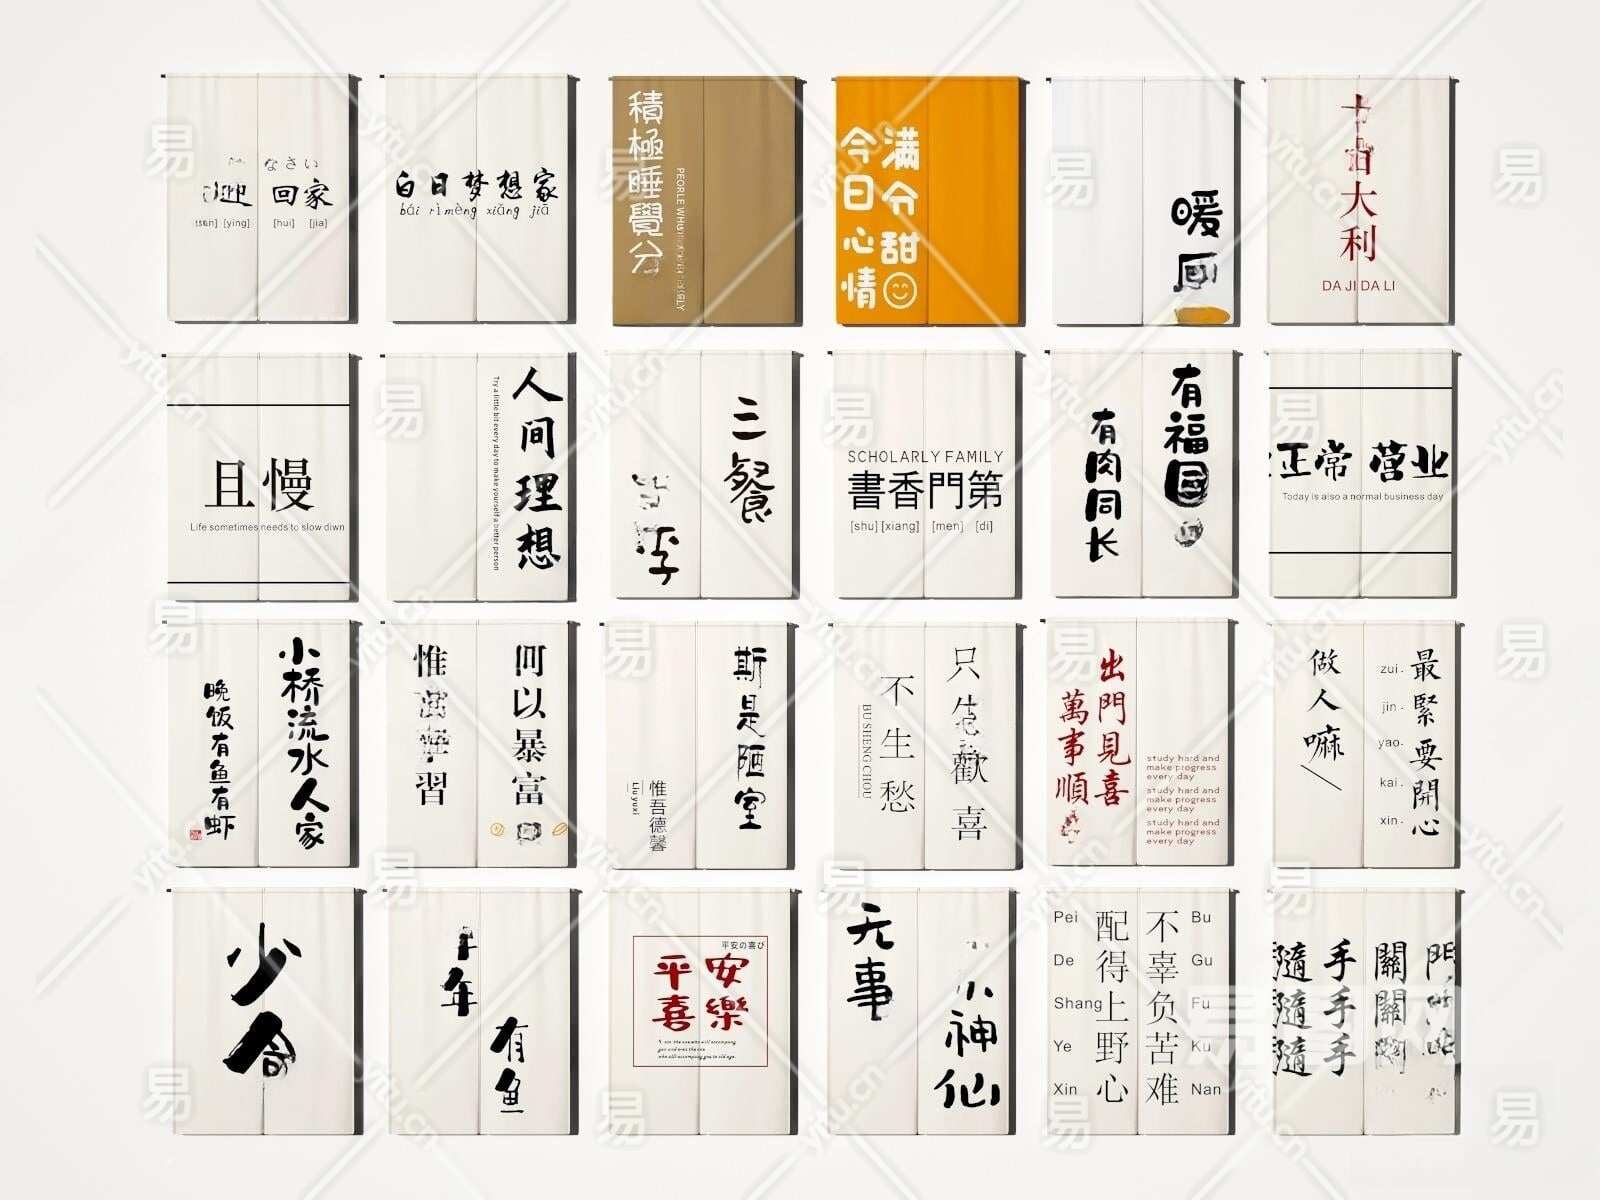 なさい
迎 回家
[ying] [hui] [jia]
白日梦想家
bái rì mèng xiǎng jiā
積極睡覺分
满分甜
今日心情
暖
大
利
DA JI DA LI
且慢
Life sometimes needs to slow diwn
人间理想
Try a little bit every day to make yourself a better person
三餐
季
SCHOLARLY FAMILY
書香門第
[shu] [xiang] [men] [di]
有福同
有肉同长
正常 营业
Today is also a normal business day
小桥流水人家
晚饭有鱼有虾
何以暴富
惟 習
斯是陋室
惟吾德馨
Liu yuxi
只生歡喜
不生愁
BU SHENG CHOU
出門見喜
萬事順
study hard and
make progress
every day
study hard and
make progress
every day
study hard and
make progress
every day
最緊要開心
zui.
jin.
yao.
kai.
xin.
做人嘛/
少
年
有鱼
平安の喜び
平安
喜樂
无事
小神仙
不辜负苦难
Bu
Gu
Fu
Ku
Nan
配得上野心
Pei
De
Shang
Ye
Xin
隨手關門
隨手關
隨手